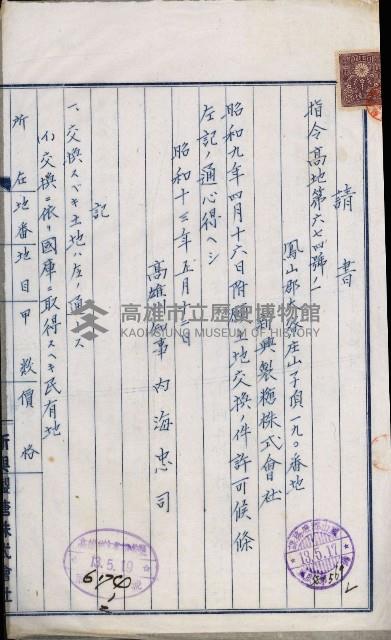 請書
指令高地第六七四號ノ一
鳳山郡大寮庄山子頂一九〇番地
新興製糖株式會社
昭和九年四月十六日附願土地交換ノ件許可候條
左記ノ通心得ヘシ
昭和十三年五月十二日
高雄州知事 內海忠司
記
一、交換スベキ土地ハ左ノ通トス
(イ)交換ニ依リ國庫ニ取得スベキ民有地
所在地番 地目 甲數 價格
新興製糖株式會社
高雄市立歷史博物館
KAOHSIUNG MUSEUM OF HISTORY
13.5.17
13.5.19